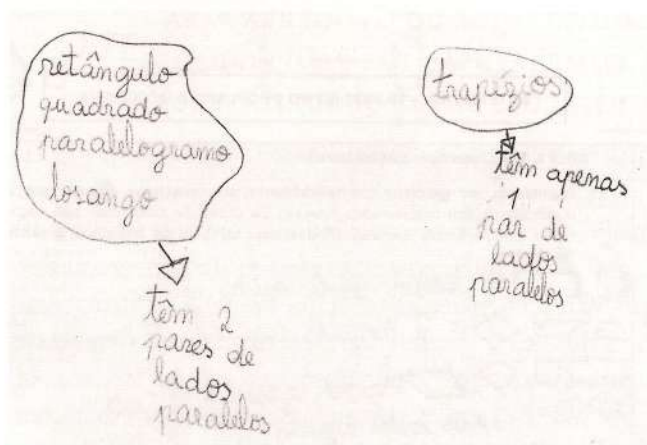 retângulo
quadrado
paralelogramo
losango
têm 2
pares de
lados
paralelos
trapézios
têm apenas
1
par de
lados
paralelos